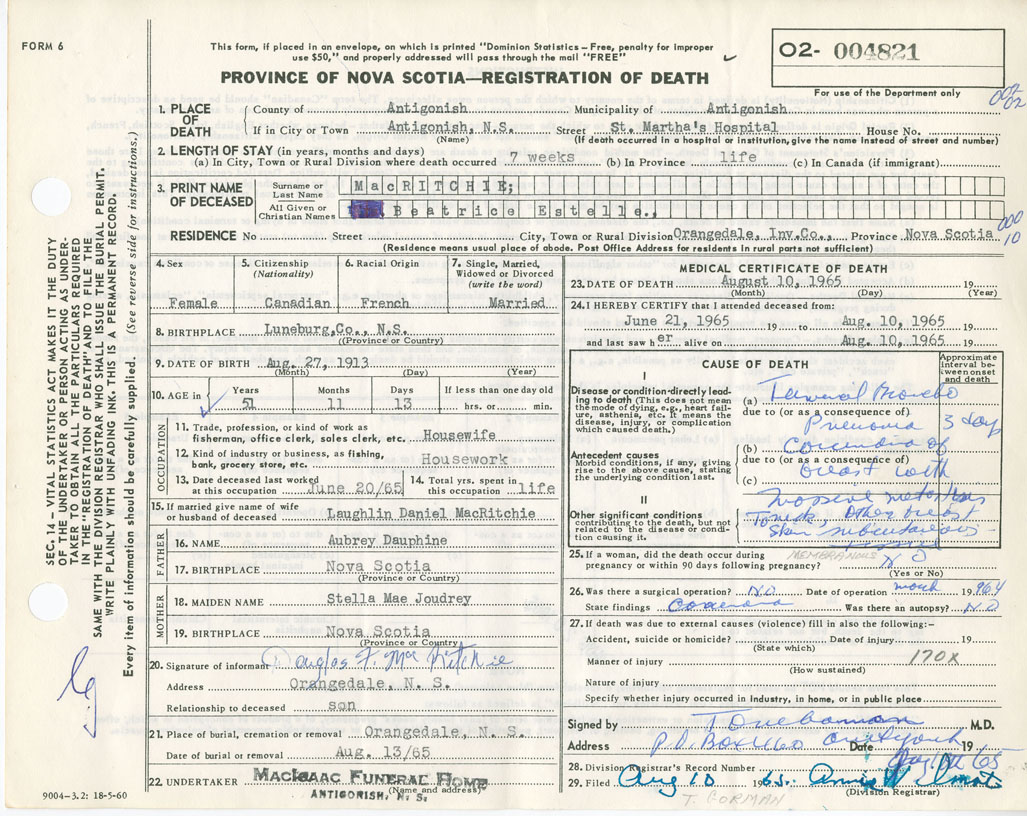 FORM 6
This form, if placed in an envelope, on which is printed "Dominion Statistics – Free, penalty for improper
use $50," and properly addressed will pass through the mail "FREE"
O2- 004821
PROVINCE OF NOVA SCOTIA—REGISTRATION OF DEATH
For use of the Department only
002
02
1. PLACE OF DEATH
County of Antigonish Municipality of Antigonish
If in City or Town Antigonish, N.S. Street St. Martha's Hospital House No.
(Name) (If death occurred in a hospital or institution, give the name instead of street and number)
2. LENGTH OF STAY (in years, months and days)
(a) In City, Town or Rural Division where death occurred 7 weeks (b) In Province life (c) In Canada (if immigrant)
3. PRINT NAME OF DECEASED
Surname or Last Name MacRITCHIE;
All Given or Christian Names Beatrice Estelle.,
000
10
RESIDENCE No Street City, Town or Rural Division Orangedale, Inv.Co., Province Nova Scotia
(Residence means usual place of abode. Post Office Address for residents in rural parts not sufficient)
4. Sex
Female
5. Citizenship (Nationality)
Canadian
6. Racial Origin
French
7. Single, Married, Widowed or Divorced (write the word)
Married
8. BIRTHPLACE Luneburg,Co., N.S.
(Province or Country)
9. DATE OF BIRTH Aug. 27, 1913
(Month) (Day) (Year)
10. AGE in Years 51 Months 11 Days 13 If less than one day old hrs. or min.
OCCUPATION
11. Trade, profession, or kind of work as
fisherman, office clerk, sales clerk, etc. Housewife
12. Kind of industry or business, as fishing,
bank, grocery store, etc. Housework
13. Date deceased last worked at this occupation June 20/65
14. Total yrs. spent in this occupation life
15. If married give name of wife or husband of deceased Laughlin Daniel MacRitchie
FATHER
16. NAME Aubrey Dauphine
17. BIRTHPLACE Nova Scotia
(Province or Country)
MOTHER
18. MAIDEN NAME Stella Mae Joudrey
19. BIRTHPLACE Nova Scotia
(Province or Country)
20. Signature of informant Douglas F. Mac Ritchie
Address Orangedale, N. S.
Relationship to deceased son
21. Place of burial, cremation or removal Orangedale, N. S.
Date of burial or removal Aug. 13/65
22. UNDERTAKER MacIsaac Funeral Home
(Name and address)
ANTIGONISH, N. S.
9004-3.2: 18-5-60
MEDICAL CERTIFICATE OF DEATH
23. DATE OF DEATH August 10, 1965 19
(Month) (Day) (Year)
24. I HEREBY CERTIFY that I attended deceased from:
June 21, 1965 19 to Aug. 10, 1965 19
and last saw h er alive on Aug. 10, 1965 19
CAUSE OF DEATH
Approximate interval between onset and death
I
Disease or condition directly leading to death (This does not mean the mode of dying, e.g., heart failure, asthenia, etc. It means the disease, injury, or complication which caused death.)
(a) Terminal Broncho
due to (or as a consequence of)
Pneumonia 3 days
Antecedent causes
Morbid conditions, if any, giving rise to the above cause, stating the underlying condition last.
(b) Carcinoma of
due to (or as a consequence of)
breast with
(c)
massive metastases
II
Other significant conditions
contributing to the death, but not related to the disease or condition causing it.
other breast
skin subcutaneous
MEMBRANOUS
25. If a woman, did the death occur during
pregnancy or within 90 days following pregnancy? NO
(Yes or No)
26. Was there a surgical operation? NO Date of operation March 1964
State findings Carcinoma Was there an autopsy? NO
27. If death was due to external causes (violence) fill in also the following:–
Accident, suicide or homicide? Date of injury 19
(State which)
Manner of injury 170X
(How sustained)
Nature of injury
Specify whether injury occurred in industry, in home, or in public place
Signed by M.D.
Address P.O. Box Date 19
28. Division Registrar's Record Number
29. Filed Aug 10 1965.
(Division Registrar)
T. GORMAN
SEC. 14 – VITAL STATISTICS ACT MAKES IT THE DUTY
OF THE UNDERTAKER OR PERSON ACTING AS UNDER-
TAKER TO OBTAIN ALL THE PARTICULARS REQUIRED
IN THE "REGISTRATION OF DEATH" AND TO FILE THE
SAME WITH THE DIVISION REGISTRAR WHO SHALL ISSUE THE BURIAL PERMIT.
WRITE PLAINLY WITH UNFADING INK. THIS IS A PERMANENT RECORD.
Every item of information should be carefully supplied. (See reverse side for instructions.)